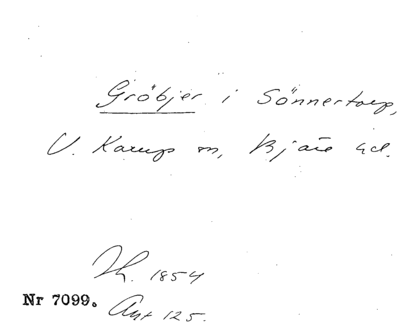 Gröbjer i Sönnertorp,
V. Karup sn, Bjäre hd.
Th. 1854
Nr 7099. Ant 125.